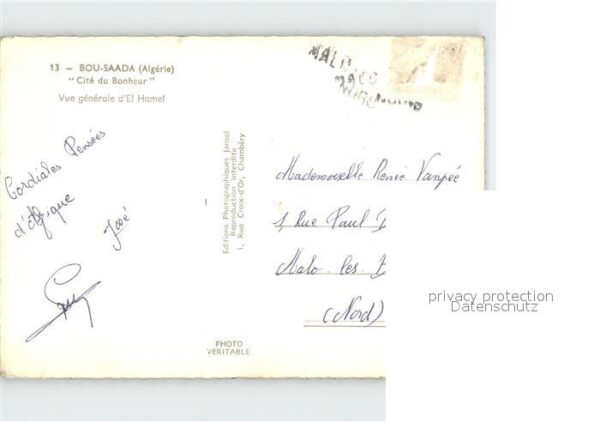 13 — BOU-SAADA (Algérie)
"Cité du Bonheur"
Vue générale d'El Hamel
Cordiales Pensées
d'Afrique
José
Editions Photographiques Jansol
Reproduction interdite
1, Rue Croix-d'Or, Chambéry
Mademoiselle Renée Vanpée
1, Rue Paul
Malo les
(Nord)
PHOTO
VERITABLE
privacy protection
Datenschutz